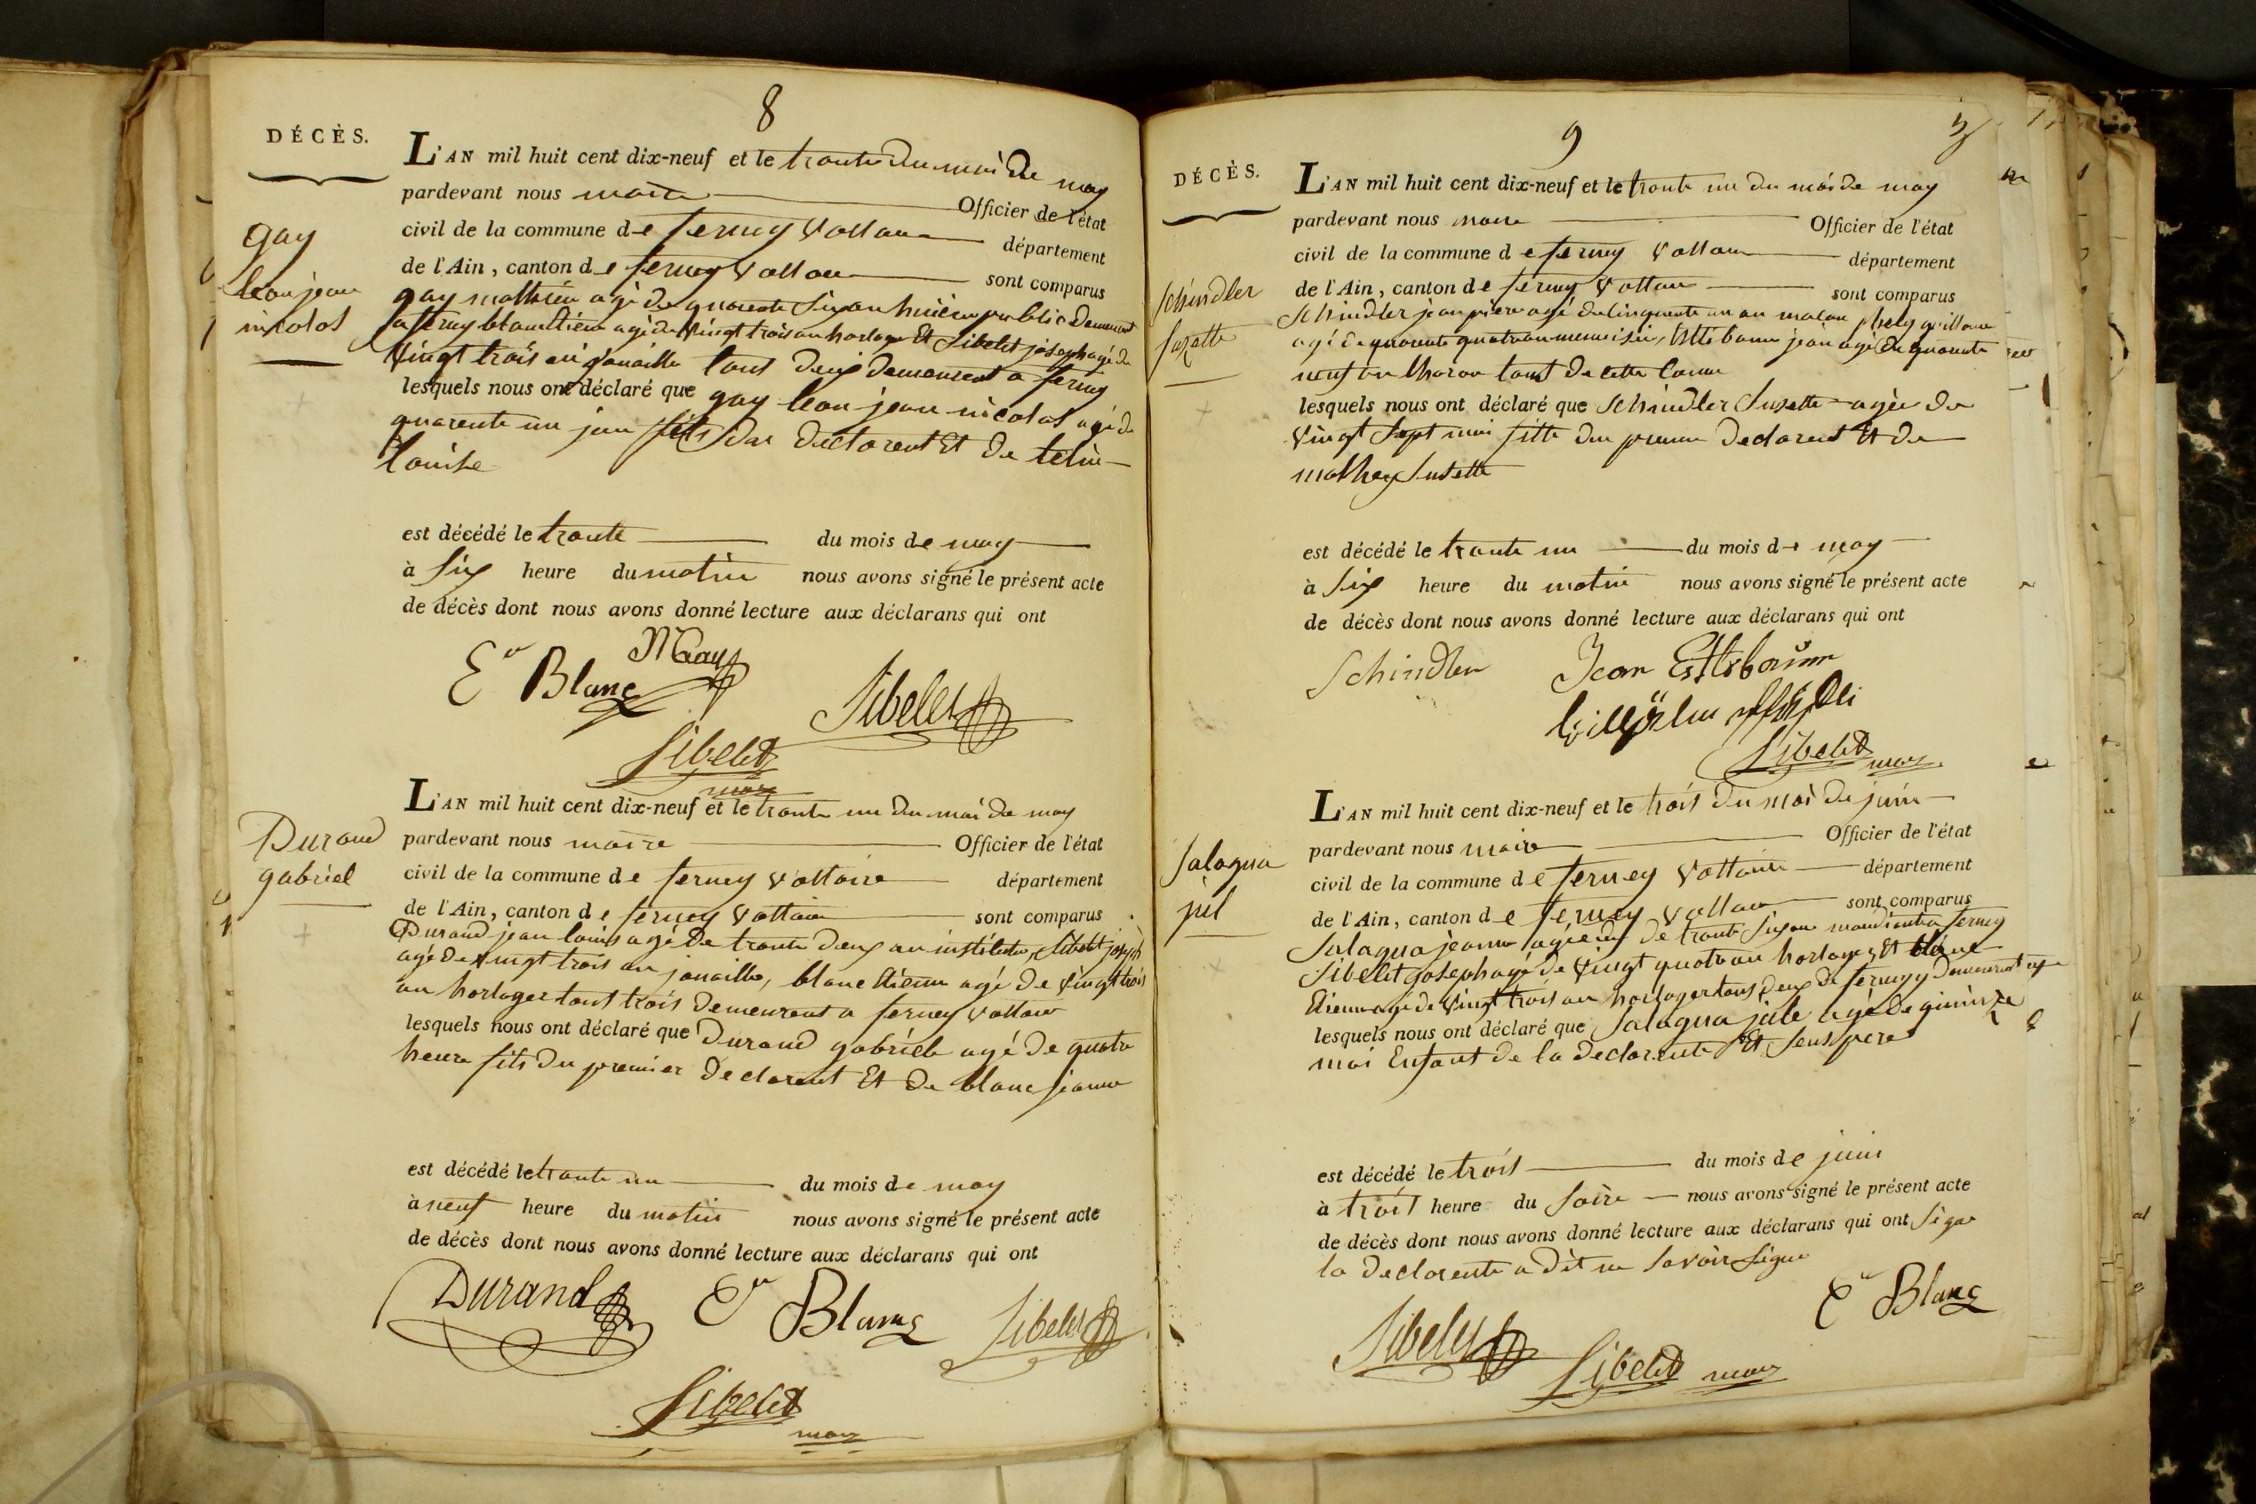 8
DÉCÈS.
L'AN mil huit cent dix-neuf et le trante du mois de may
pardevant nous maire Officier de l'état
civil de la commune de ferney Voltaire département
de l'Ain, canton de ferney Voltaire sont comparus
gay
leon jean
nicolas
gay mathieu agé de quarente six an huissier public demeurant
a ferney blanc etiene agé de vingt trois an horloger Et Sibelet joseph agé de
vingt trois an jouaille tous deux demeurent a ferney
lesquels nous ont déclaré que gay leon jean nicolas agé de
quarente un jour fils du declarent Et de
louise
est décédé le trante du mois de may
à six heure du matin nous avons signé le présent acte
de décès dont nous avons donné lecture aux déclarans qui ont
E Blanc MGay
Sibelet
Sibelet
maire
L'AN mil huit cent dix-neuf et le trante un du mois de may
Durand
gabriel
pardevant nous maire Officier de l'état
civil de la commune de ferney Voltaire département
de l'Ain, canton de ferney Voltaire sont comparus
Durand jean louis agé de trante deux an instituteur, Sibelet joseph
agé de vingt trois an jouaille, blanc etienne agé de vingt trois
an horloger tout trois demeurent a ferney Voltaire
lesquels nous ont déclaré que Durand gabriele agé de quatre
heure fils du premier declarent Et de blanc jeanne
est décédé le trante un du mois de may
à neuf heure du matin nous avons signé le présent acte
de décès dont nous avons donné lecture aux déclarans qui ont
Durand E Blanc Sibelet
Sibelet
maire
9
DÉCÈS.
L'AN mil huit cent dix-neuf et le trante un du mois de may
pardevant nous maire Officier de l'état
civil de la commune de ferney Voltaire département
de l'Ain, canton de ferney Voltaire sont comparus
Schindler
Suzette
Schindler jean pierre agé de cinquente un an macon
agé de quarente quatre an menuisier, jean agé de quarente
neuf an tout de cette
lesquels nous ont déclaré que Schindler Susette agée de
vingt sept mois fille du premier declarent Et de
mathey Susette
est décédé le trante un du mois de may
à six heure du matin nous avons signé le présent acte
de décès dont nous avons donné lecture aux déclarans qui ont
Schindler Jean
Sibelet maire
L'AN mil huit cent dix-neuf et le trois du mois de juin
Salagua
pardevant nous maire Officier de l'état
civil de la commune de ferney Voltaire département
de l'Ain, canton de ferney Voltaire sont comparus
Salagua jeanne agée de trante six an a ferney
Sibelet Joseph agé de vingt quatre an horloger Et blanc
Etienne agé de vingt trois an horloger tous deux de ferney
lesquels nous ont déclaré que Salagua agé de quinze
moi Enfant de la declarente Et sens pere
est décédé le trois du mois de juin
à trois heure du soire nous avons signé le présent acte
de décès dont nous avons donné lecture aux déclarans qui ont signe
la declarente a dit ne savoir signe
E Blanc
Sibelet Sibelet maire